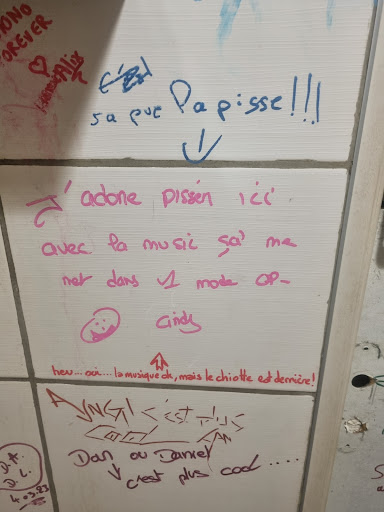 MONO
FOREVER
sa pue Papisse!!!
J'adore pisser ici
avec la music sa' me
met dans 1 mode OP-
Cindy
heu...oui...la musique ok, mais le chiotte est derrière!
c'est plus
Dan ou Daniel
c'est plus cool.....
D.A.
D.L.
4.03.23